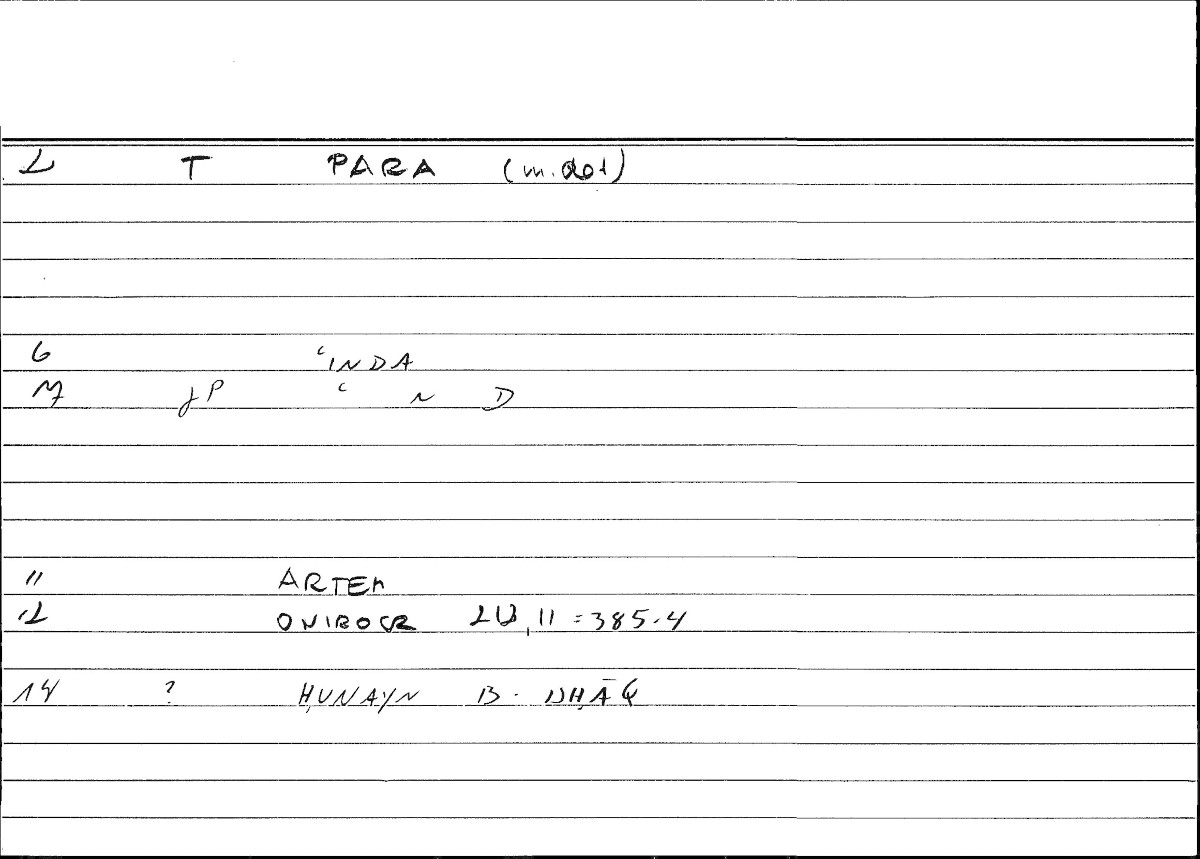 2 T PARA (m. dot)
6 ʿINDA
7 JP ʿ N D
11 ARTEM
12 ONIROCR 213,11 = 385.4
14 ? ḤUNAYN B. ISḤĀQ